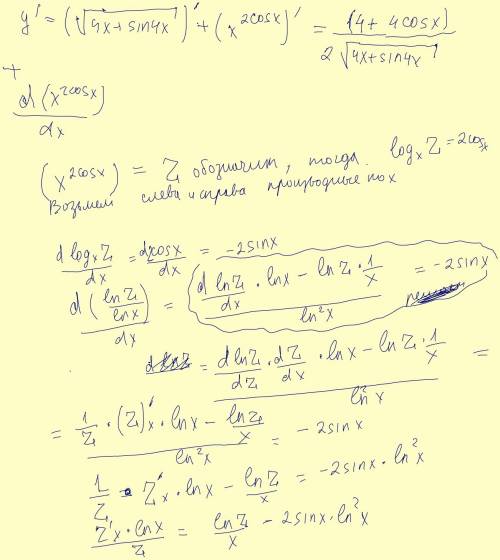 y' = (√(4x+sin4x))' + (x^(2cosx))' = (4+4cosx) / (2√(4x+sin4x))
+
d(x^(2cosx)) / dx
(x^(2cosx)) = Z обозначит, тогда. log_x Z = 2cosx
Возьмем слева и справа производные по x
d log_x Z / dx = d2cosx / dx = -2sinx
d(lnZ / lnx) / dx = (dlnZ/dx · lnx - lnZ · 1/x) / ln²x = -2sinx
= (dlnZ/dZ · dZ/dx · lnx - lnZ · 1/x) / ln²x =
= (1/Z · (Z)'x · lnx - lnZ/x) / ln²x = -2sinx
1/Z · Z'x · lnx - lnZ/x = -2sinx · ln²x
Z'x · lnx / Z = lnZ/x - 2sinx · ln²x